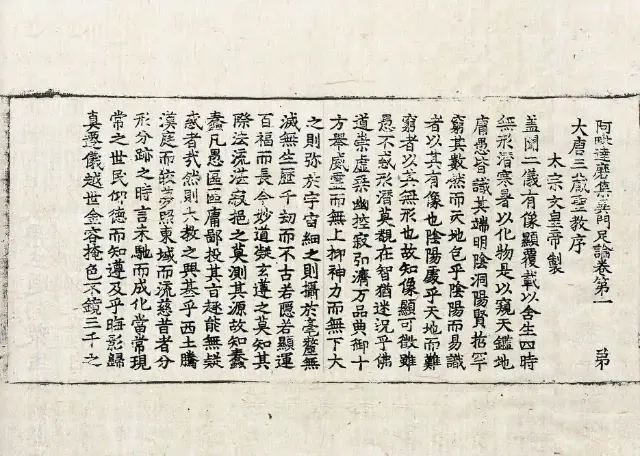 阿毗達磨集異門足論卷第一 第
大唐三藏聖教序
太宗文皇帝製
蓋聞二儀有像顯覆載以含生四時
無形潛寒暑以化物是以窺天鑑地
庸愚皆識其端明陰洞陽賢哲罕
窮其數然而天地包乎陰陽而易識
者以其有像也陰陽處乎天地而難
窮者以其無形也故知像顯可徵雖
愚不惑形潛莫覩在智猶迷況乎佛
道崇虛乘幽控寂弘濟万品典御十
方舉威靈而無上抑神力而無下大
之則弥於宇宙細之則攝於毫釐無
滅無生歷千劫而不古若隱若顯運
百福而長今妙道凝玄遵之莫知其
際法流湛寂挹之莫測其源故知蠢
蠢凡愚區區庸鄙投其旨趣能無疑
惑者哉然則大教之興基乎西土騰
漢庭而皎夢照東域而流慈昔者分
形分跡之時言未馳而成化當常現
常之世民仰德而知遵及乎晦影歸
真遷儀越世金容掩色不鏡三千之